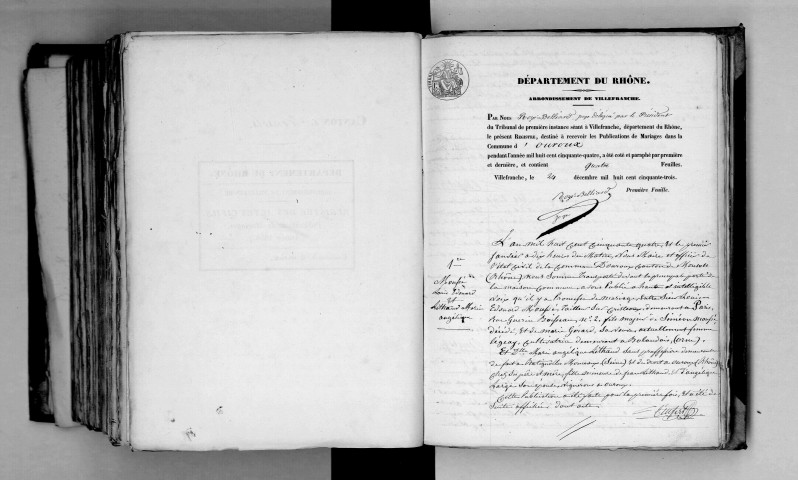 DÉPARTEMENT DU RHÔNE.
ARRONDISSEMENT DE VILLEFRANCHE.
PAR NOUS juge délégué par le Président
du Tribunal de première instance séant à Villefranche, département du Rhône,
le présent REGISTRE, destiné à recevoir les Publications de Mariages dans la
Commune d'ouroux
pendant l'année mil huit cent cinquante-quatre, a été coté et paraphé par première
et dernière, et contient quatre Feuilles.
Villefranche, le 24 décembre mil huit cent cinquante-trois.
Première Feuille.
L'an mil huit cent cinquante quatre, et le premier
janvier à dix heures du matin, Nous Maire et officier de
l'état civil de la commune Douroux canton de Monsols
(Rhône) Nous Sommes Transporté devant la principale porte de
la maison commune, avons Publié à haute et intelligible
voix qu'il y a Promesse de mariage, Entre Sieur Louis
Edouard Moussé, Tailleur sur demeurant à Paris,
Rue Guérin Boisseau, N° 2, fils majeur de Siméon Moussé
décédé, et de marie Girard, Sa veuve, actuellement femme
cultivatrice demeurant à (orne)
Et Dlle Marie angélique Lathaud Sans profession demeurant
de fait à Batignolles Monceaux (Seine) et de droit à ouroux (Rhône)
chez Ses père et mère, fille mineure de jean Lathaud et d'angélique
Large Son épouse, Vignerons à ouroux.
Cette Publication a été faite pour la première fois, et a été de
Suite affichée dont acte.
1re
Moussé
Louis Edouard
et
Lathaud Marie
angélique